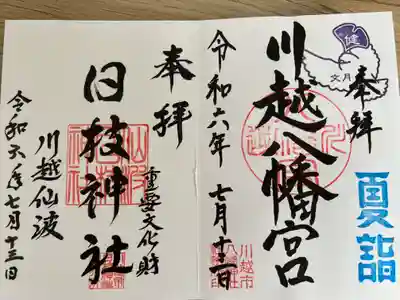 奉拝
川越八幡宮
令和六年 七月十三日
健
文月
夏詣
川越市
奉拝
重要文化財
日枝神社
川越仙波
令和六年七月十三日